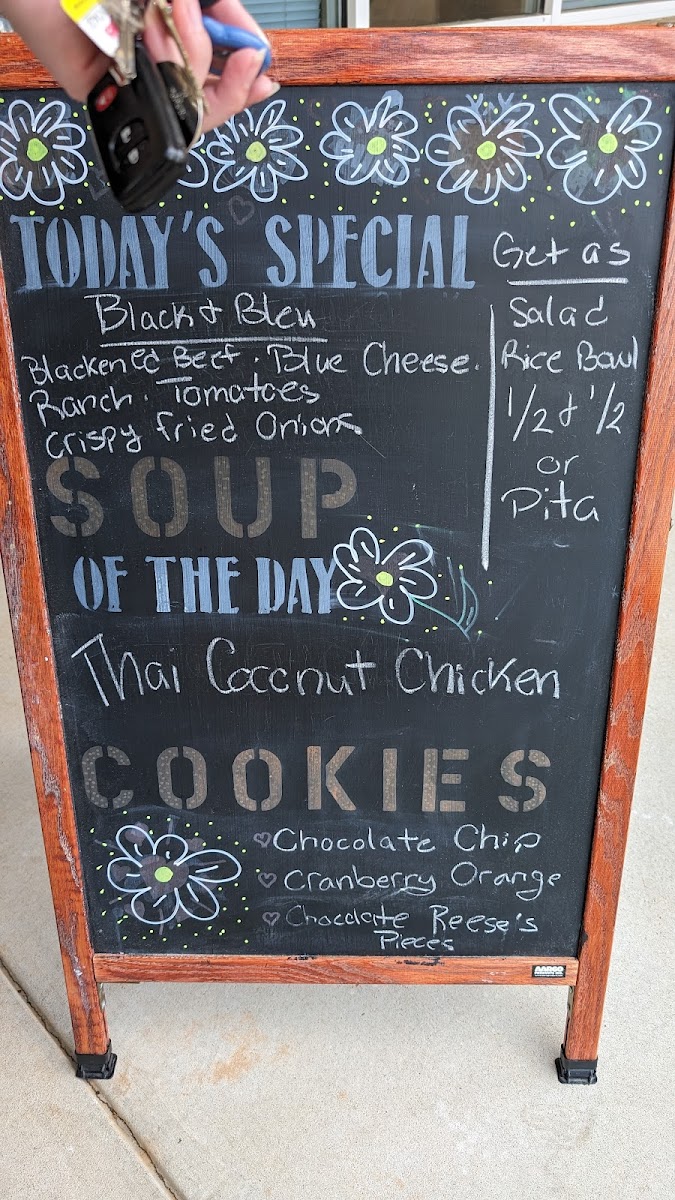 TODAY'S SPECIAL
Black & Bleu
Blackened Beef · Blue Cheese ·
Ranch · Tomatoes
Crispy fried Onions
Get as
Salad
Rice Bowl
1/2 & 1/2
or
Pita
SOUP
OF THE DAY
Thai Coconut Chicken
COOKIES
Chocolate Chip
Cranberry Orange
Chocolate Reese's
Pieces
AARCO